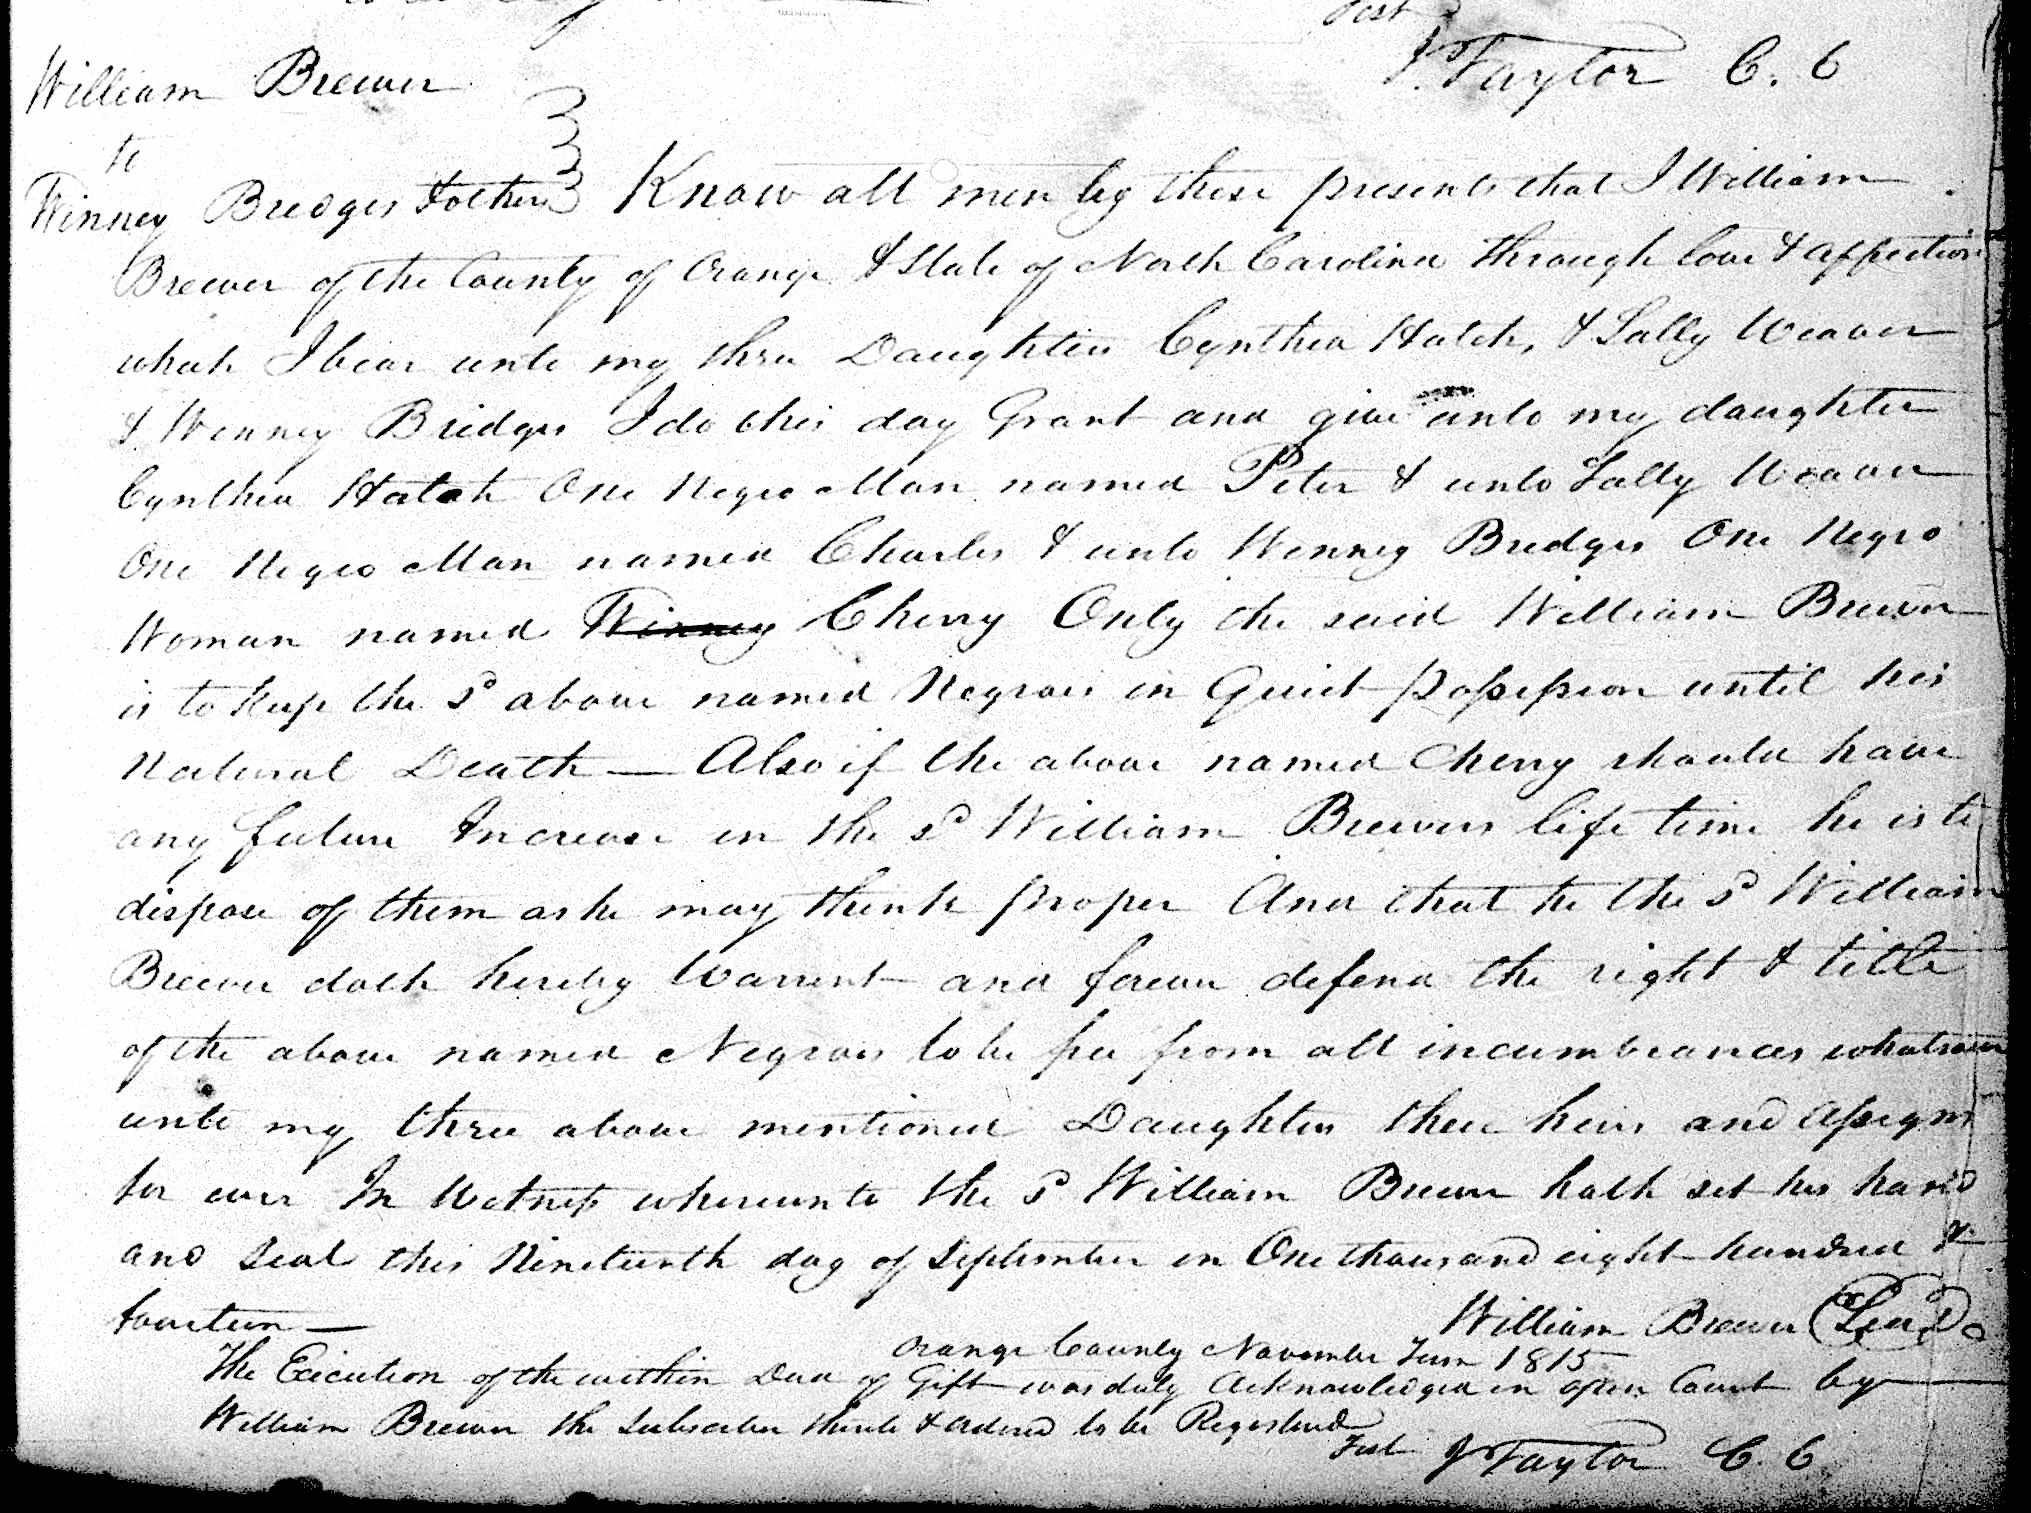 Test
J. Taylor C. C
William Brewer
to
Winney Bridges & others Know all men by these presents that I William
Brewer of the County of Orange & State of North Carolina through love & affection
which I bear unto my three Daughters Cynthia Hatch, & Sally Weaver
& Winney Bridges I do this day Grant and give unto my daughter
Cynthia Hatch One Negro Man named Peter & unto Sally Weaver
One Negro Man named Charles & unto Winney Bridges One Negro
Woman named Winney Cherry Only the said William Brewer
is to keep the sd above named Negroes in Quiet possession until his
Natural Death — Also if the above named Cherry should have
any future Increase in the sd William Brewers life time he is to
dispose of them as he may think proper And that he the sd William
Brewer doth hereby Warrent and forever defend the right & title
of the above named Negroes to be free from all incumbrances whatsoever
unto my three above mentioned Daughters their heirs and assigns
for ever In Witness whereunto the sd William Brewer hath set his hand
and Seal this Nineteenth day of September in One thousand eight hundred &
fourteen —
William Brewer (Seal)
Orange County November Term 1815
The Execution of the within Deed of Gift was duly Acknowledged in open Court by
William Brewer the Subscriber thereto & ordered to be Registered
Test J Taylor C. C